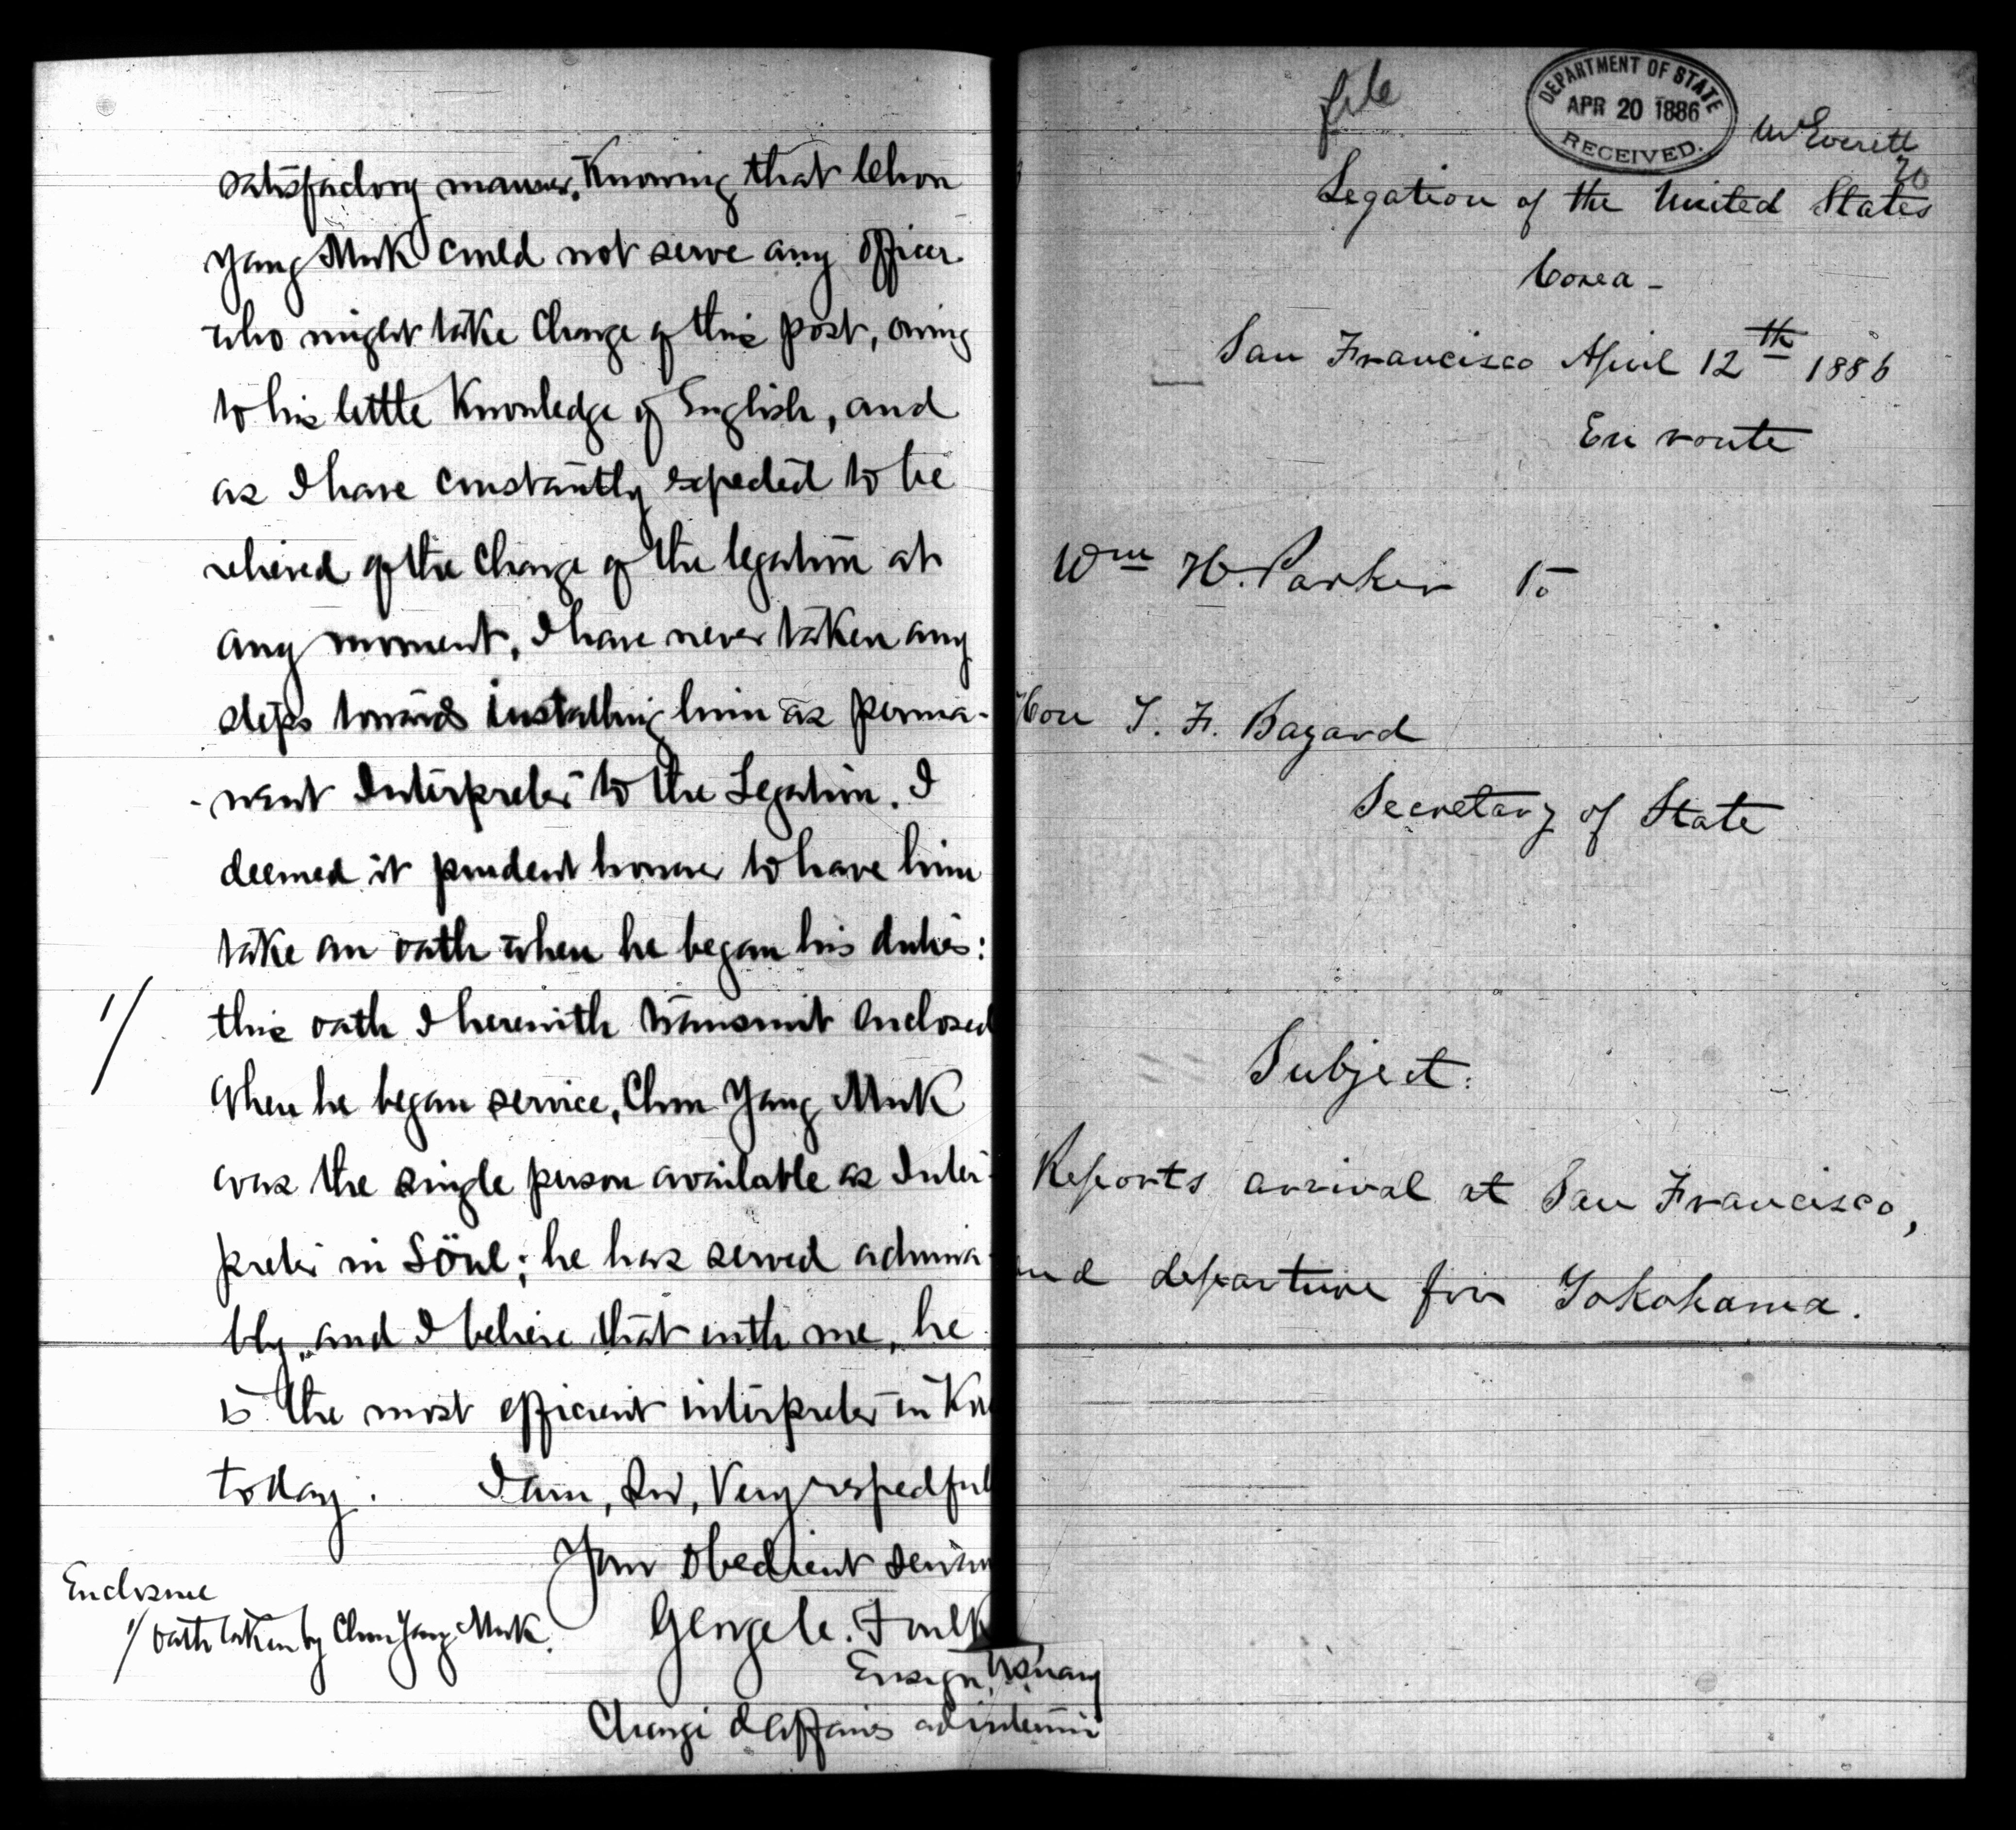 satisfactory manner. Knowing that Chon
Yang Muk could not serve any officer
who might take charge of this post, owing
to his little knowledge of English, and
as I have constantly expected to be
relieved of the charge of the legation at
any moment, I have never taken any
steps towards installing him as perma-
-nent Interpreter to the Legation. I
deemed it prudent however to have him
take an oath when he began his duties:
1/ this oath I herewith transmit enclosed
When he began service, Chon Yang Muk
was the single person available as Inter-
preter in Söul; he has served admira-
bly, and I believe that with me, he
is the most efficient interpreter in Ko
today. I am, Sir, Very respectful
Your obedient servan
George C. Foulk
Ensign, US Navy
Chargé d'Affaires ad interim
Enclosure
1/ Oath taken by Chon Yang Muk.
file
DEPARTMENT OF STATE
APR 20 1886
RECEIVED.
Mr Everett
20
Legation of the United States
Corea -
San Francisco April 12th 1886
En route
Wm H. Parker to
Hon T. F. Bayard
Secretary of State
Subject:
Reports arrival at San Francisco,
and departure for Yokohama.